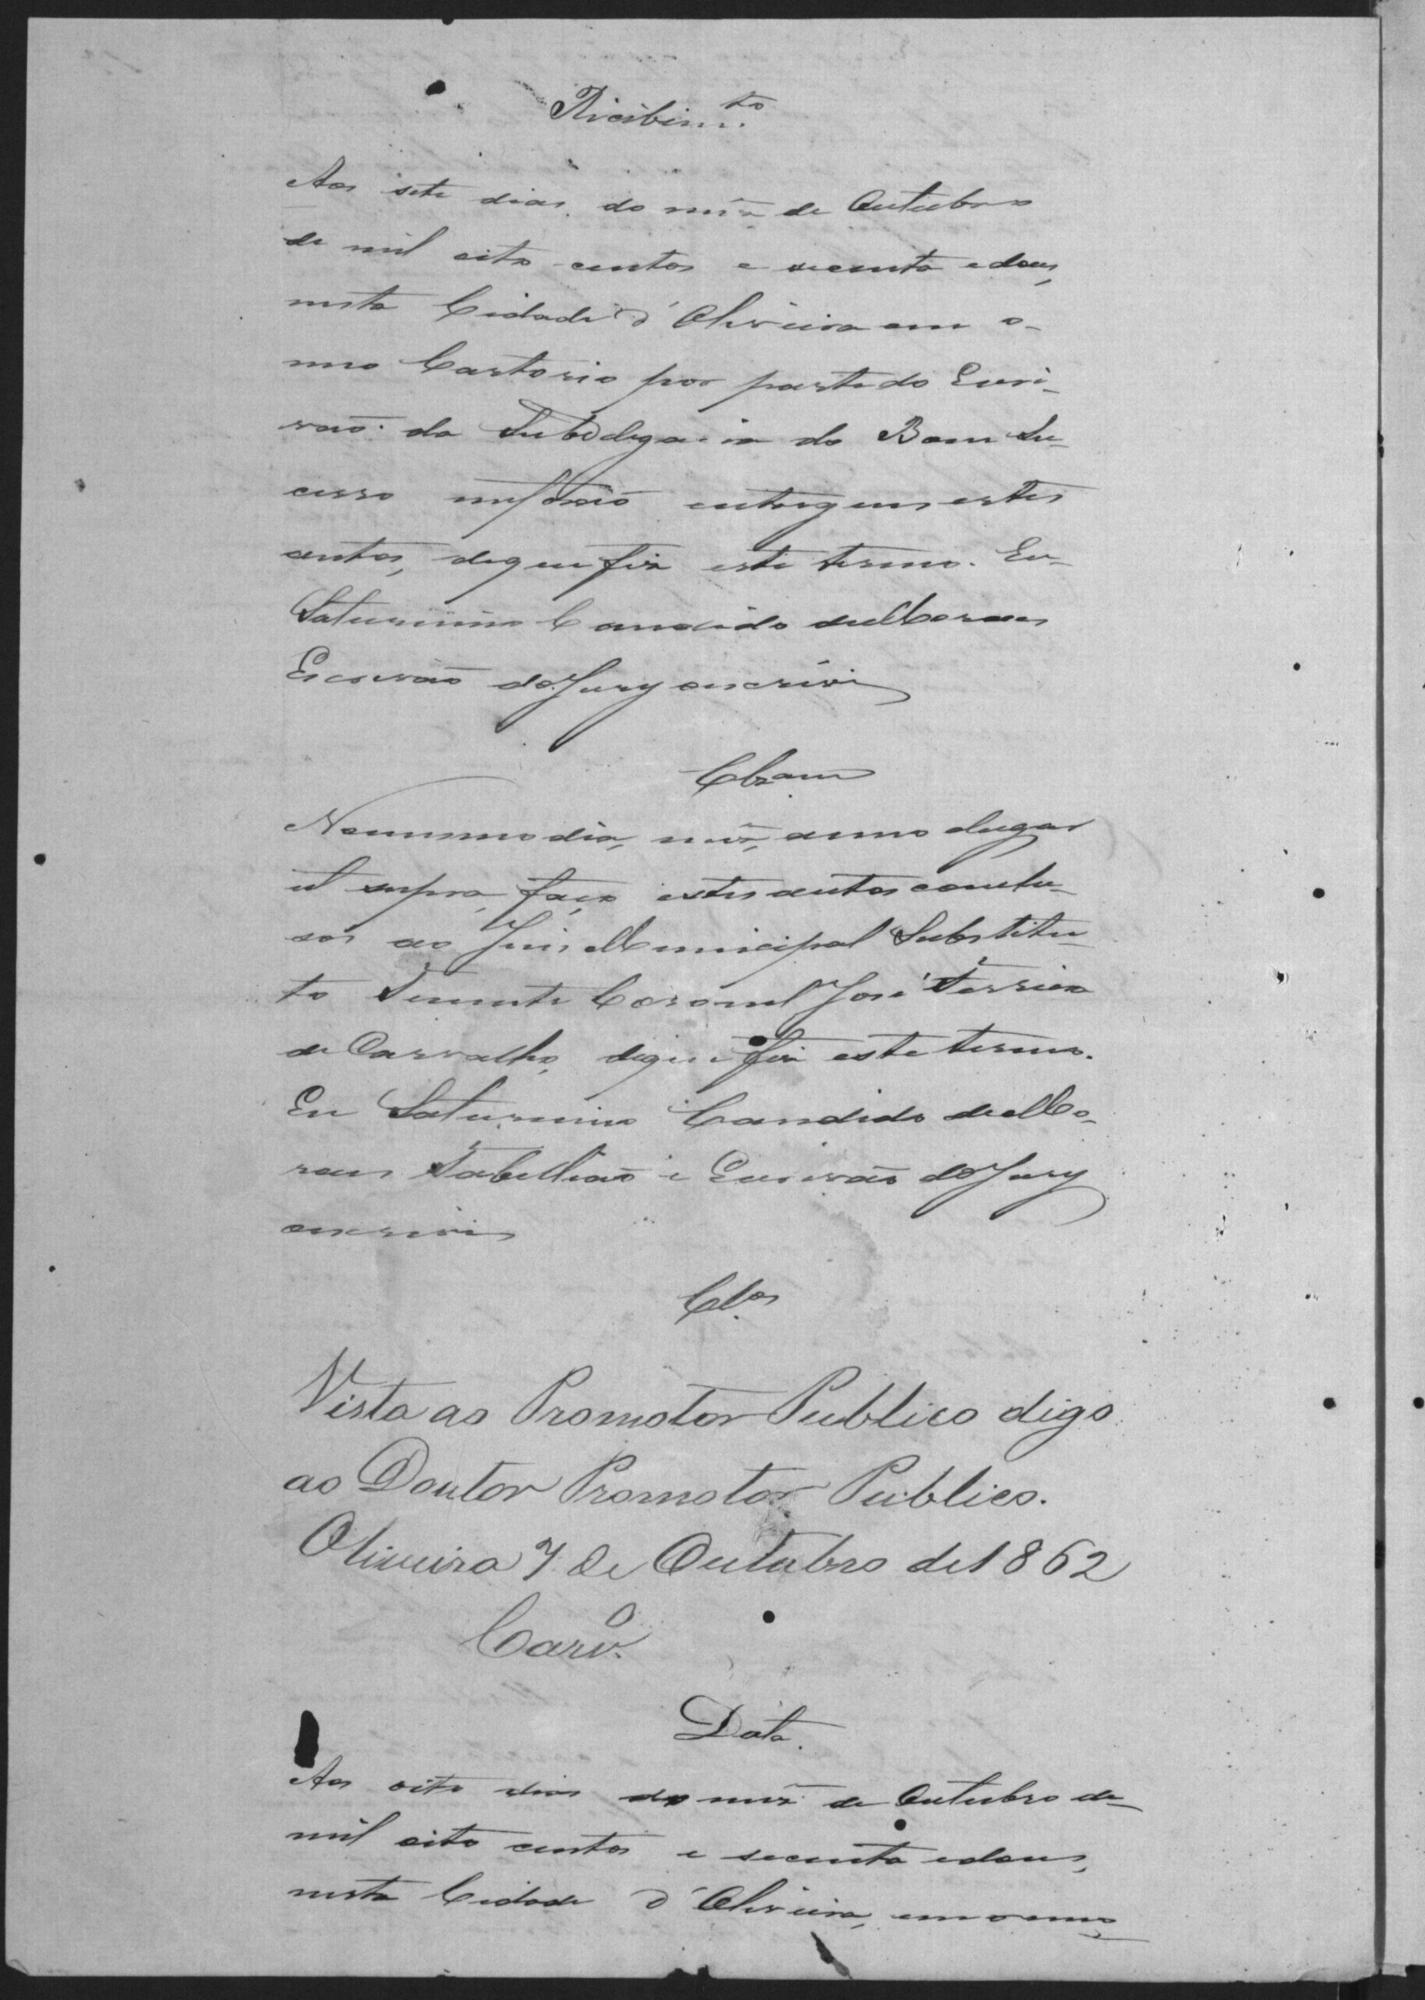 Recebim.to
Aos sete dias do mez de Outubro
de mil oito centos e secenta e dous,
nesta Cidade d'Oliveira em o
meo Cartorio por parte do Escri-
vaõ da Subdelegacia do Bom Su-
cesso me foraõ entregues estes
autos, de que fiz este termo. Eu
Saturnino Candido de Moraes
Escrivaõ do Jury o escrevi
Clzam
No mesmo dia, mez, anno e lugar
ut supra, faço estes autos conclu-
sos ao Juis Municipal Substitu-
to Tenente Coronel José Ferreira
de Carvalho, de que fiz este termo.
Eu Saturnino Candido de Mo-
raes Tabelliaõ e Escrivaõ do Jury
o escrevi
Cl.os
Vista ao Promotor Publico digo
ao Doutor Promotor Publico.
Oliveira 7 de Outubro de 1862
Carv.o
Data.
Aos oito dias do mez de Outubro de
mil oito centos e secenta e dous,
nesta Cidade d'Oliveira, em o meo